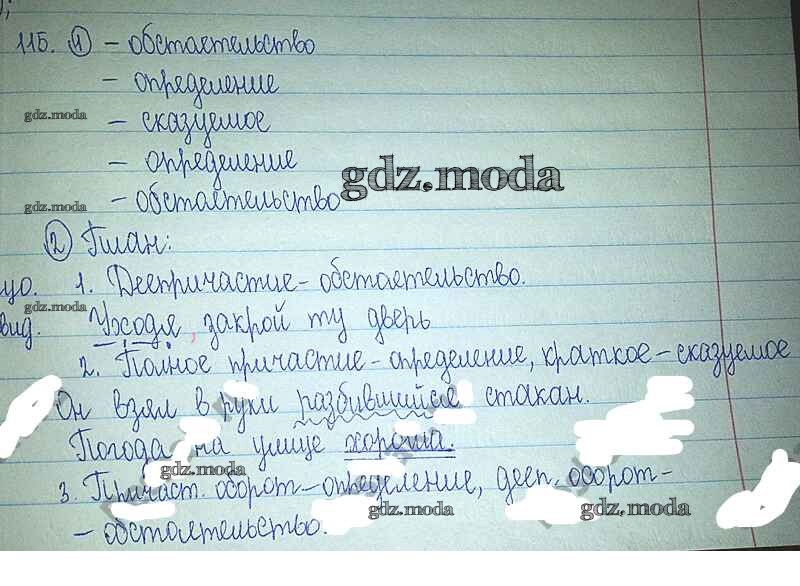 115. 1 – обстоятельство
– определение
gdz.moda
– сказуемое
– определение
gdz.moda
gdz.moda
– обстоятельство
2 План:
1. Деепричастие – обстоятельство.
gdz.moda
вид. Уходя, закрой ту дверь
2. Полное причастие – определение, краткое – сказуемое
Он взял в руки разбившийся стакан.
Погода на улице хороша.
gdz.moda
3. Причаст. оборот – определение, дееп. оборот –
gdz.moda gdz.moda
– обстоятельство.